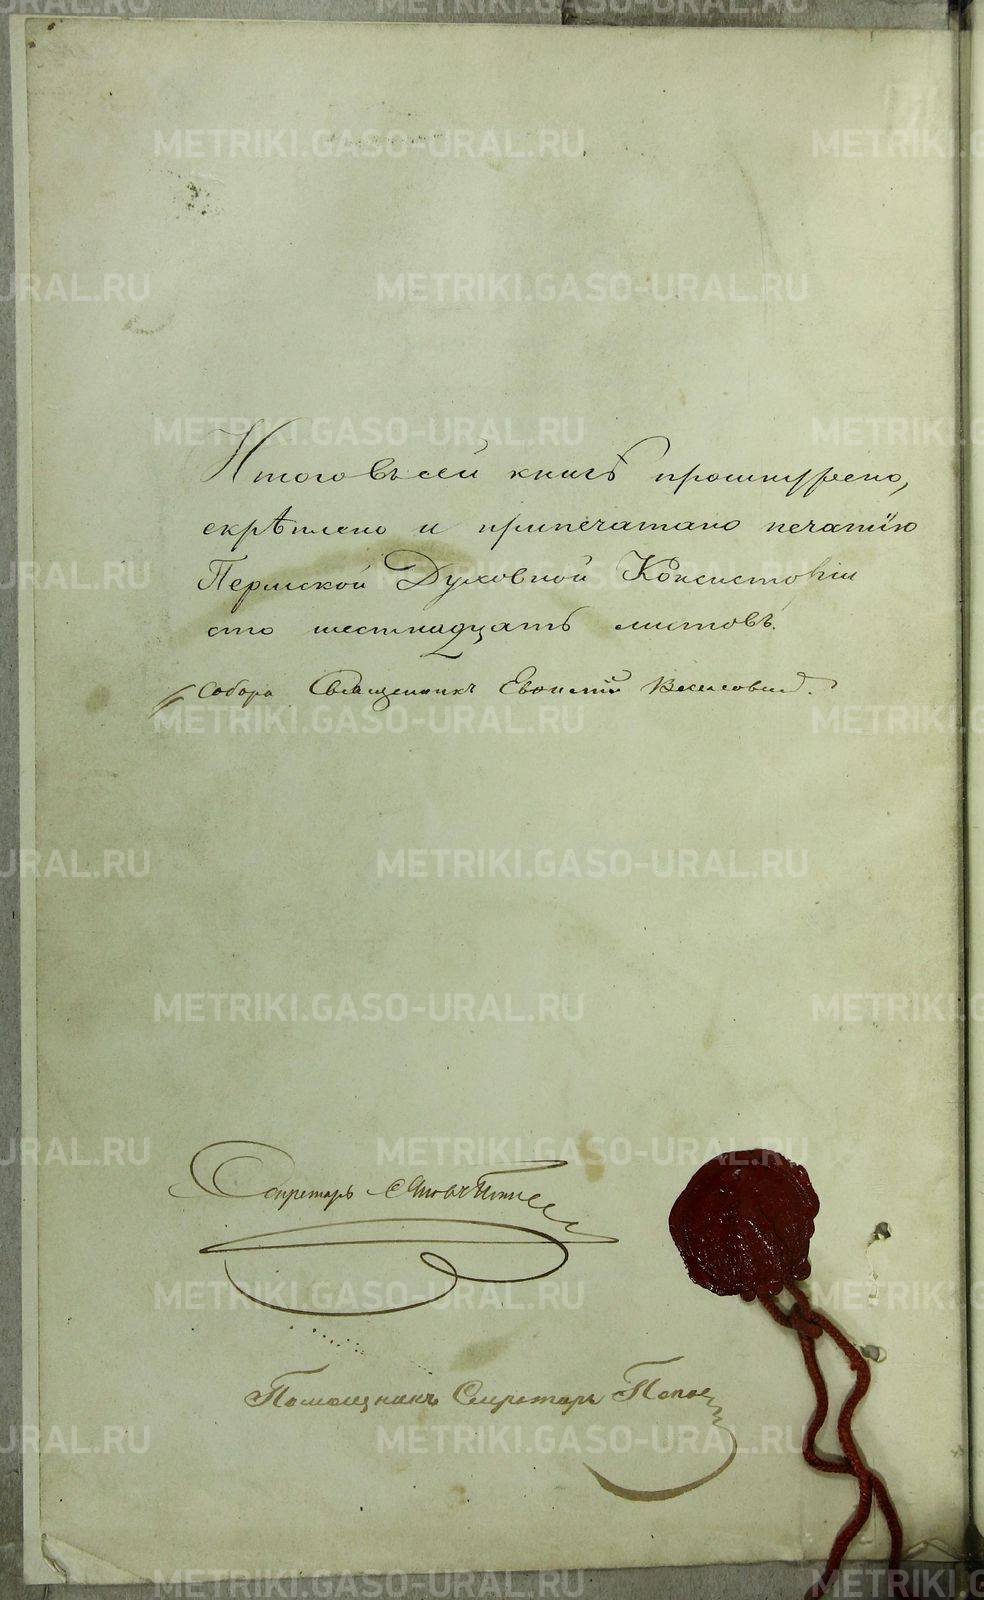 Итого въ сей книгѣ прошнурено,
скрѣплено и припечатано печатію
Пермской Духовной Консисторіи
сто шестнадцать листовъ.
Собора Священникъ Евгеній
Секретарь
Помощникъ Секретаря Попов
METRIKI.GASO-URAL.RU